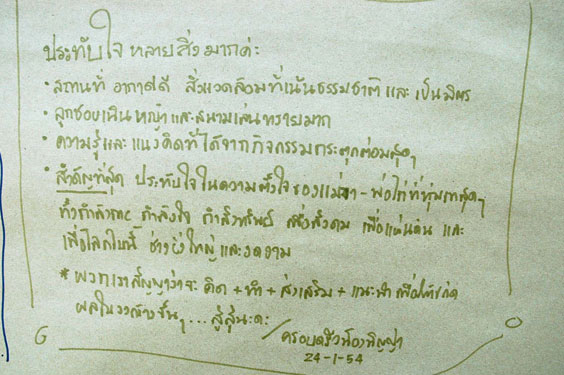 ประทับใจ หลายสิ่งมากค่ะ
• สถานที่ อากาศดี สิ่งแวดล้อมที่เน้นธรรมชาติ และ เป็นมิตร
• ลูกชอบเนินหญ้า และสนามเล่นทรายมาก
• ความรู้และแนวคิดที่ได้จากกิจกรรมกระตุกต่อมสุดๆ
• สำคัญที่สุด ประทับใจในความตั้งใจของแม่ - พ่อ ที่ทุ่มเทสุดๆ
ทั้งกำลังกาย กำลังใจ กำลังทรัพย์ เพื่อสังคม เพื่อแผ่นดิน และ
เพื่อโลกใบนี้ ช่างยิ่งใหญ่ และงดงาม
* พวกเราสัญญาว่าจะ คิด + ทำ + ส่งเสริม + แนะนำ เพื่อให้เกิด
ผลในวงกว้างขึ้นๆ ... สู้สู้นะคะ
ครอบครัวน้อง
24-1-54